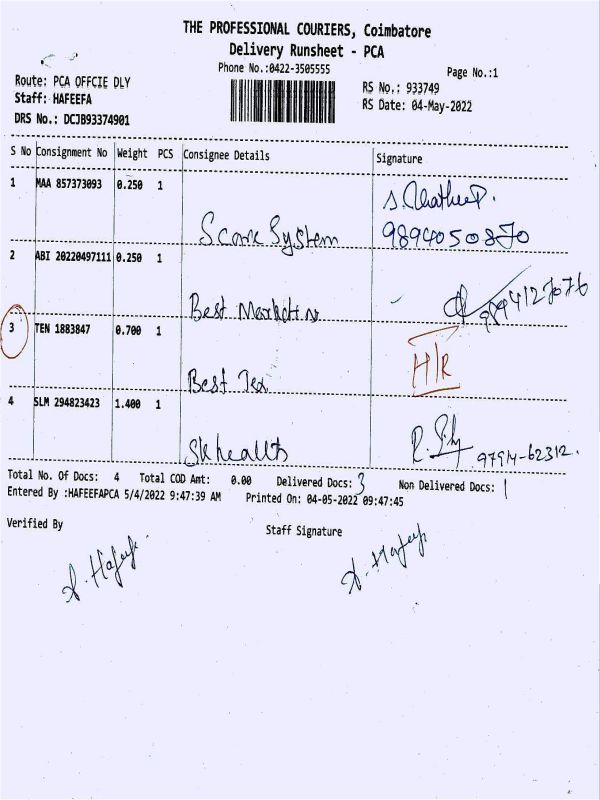 THE PROFESSIONAL COURIERS, Coimbatore
Delivery Runsheet - PCA
Phone No.:0422-3505555
Page No.:1
Route: PCA OFFCIE DLY
RS No.: 933749
Staff: HAFEEFA
RS Date: 04-May-2022
DRS No.: DCJB93374901
S No Consignment No Weight PCS Consignee Details Signature
1 MAA 857373093 0.250 1
Score System 9894050870
2 ABI 20220497111 0.250 1
Best Marketing
3 TEN 1883847 0.700 1 H/R
Best Tex
4 SLM 294823423 1.400 1
Sk health 9794-62312.
Total No. Of Docs: 4 Total COD Amt: 0.00 Delivered Docs: 3 Non Delivered Docs: 1
Entered By :HAFEEFAPCA 5/4/2022 9:47:39 AM Printed On: 04-05-2022 09:47:45
Verified By Staff Signature